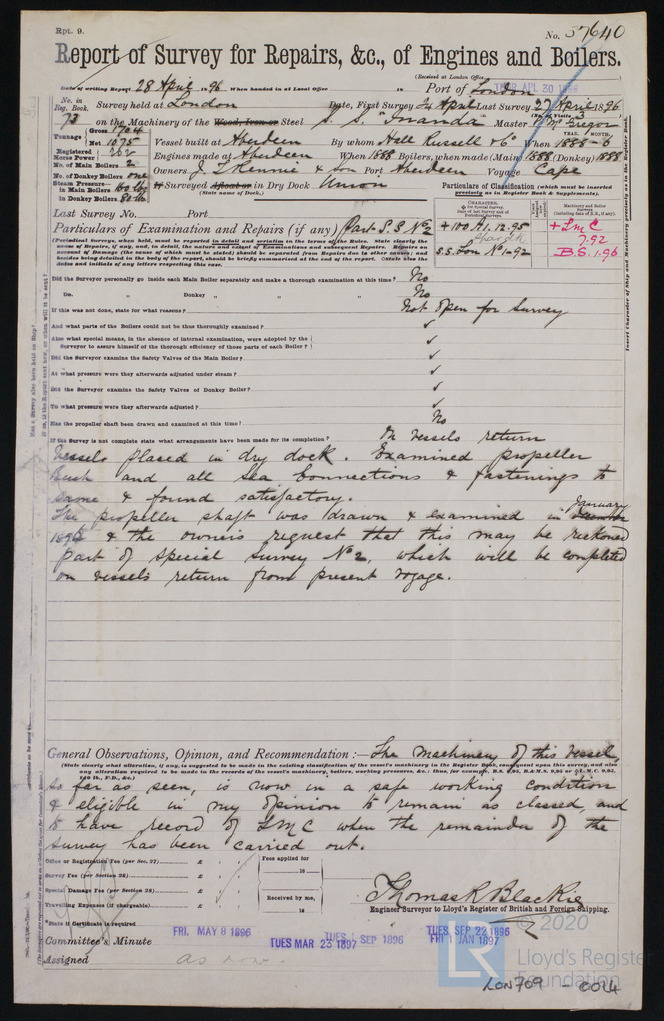 Rpt. 9.
No. 57640
Report of Survey for Repairs, &c., of Engines and Boilers.
(Received at London Office
Date of writing Report 28 April 1896 When handed in at Local Office 18 Port of London THUR APR 30 1896
No. in Reg. Book. Survey held at London Date, First Survey 24 April Last Survey 27 April 1896
73 on the Machinery of the Wood, Iron or Steel S. S. "Inanda" Master McGregor
(No. of Visits 3)
Tonnage Gross 1704 Net 1075 Vessel built at Aberdeen By whom Hall Russell & Co When 1888 - 6
YEAR. MONTH.
Registered Horse Power 262 Engines made at Aberdeen When 1888 Boilers, when made (Main) 1888 (Donkey) 1888
No. of Main Boilers 2
No. of Donkey Boilers one Owners J. T. Rennie & Son Port Aberdeen Voyage Cape
Steam Pressure in Main Boilers 160 lbs If Surveyed Afloat or in Dry Dock Union
in Donkey Boilers 80 lbs (State name of Dock.)
Particulars of Classification (which must be inserted precisely as in Register Book & Supplements).
Last Survey No. Port
Particulars of Examination and Repairs (if any) Part S.S No 2
(Periodical Surveys, when held, must be reported in detail and seriatim in the terms of the Rules. State clearly the
CHARACTER.
+ 100 A1. 12.95
S.S. Lon No 1-92
Machinery and Boiler Surveys
+ LMC
7.92
B.S. 1.96
Did the Surveyor personally go inside each Main Boiler separately and make a thorough examination at this time? No
Do. " Donkey " " " No
If this was not done, state for what reasons? Not open for Survey
And what parts of the Boilers could not be thus thoroughly examined? ✓
Also what special means, in the absence of internal examination, were adopted by the
Surveyor to assure himself of the thorough efficiency of those parts of each Boiler? ✓
Did the Surveyor examine the Safety Valves of the Main Boiler? ✓
At what pressure were they afterwards adjusted under steam? ✓
Did the Surveyor examine the Safety Valves of Donkey Boiler? ✓
To what pressure were they afterwards adjusted? ✓
Has the propeller shaft been drawn and examined at this time? No
If the Survey is not complete state what arrangements have been made for its completion? On vessels return
Vessels placed in dry dock. Examined propeller
bush and all sea connections & fastenings to
same & found satisfactory.
The propeller shaft was drawn & examined in January
1896 & the owners request that this may be reckoned
part of Special Survey No 2, which will be completed
on vessels return from present voyage.
General Observations, Opinion, and Recommendation:— The machinery of this vessel,
(State clearly what alteration, if any, is suggested to be made in the existing classification of the vessel's machinery in the Register Book, consequent upon this survey, and also
any alteration required to be made in the records of the vessel's machinery, boilers, working pressures, &c.: thus, for example, B.S. 9,95, B.&M.S. 9,95 or L.M.C. 9,95,
140 lb., F.D., &c.)
so far as seen, is now in a safe working condition
& eligible in my opinion to remain as classed, and
to have record of LMC when the remainder of the
survey has been carried out.
Office or Registration Fee (per Sec. 27) £ Fees applied for
Survey Fee (per Section 28) £ 18
Special Damage Fee (per Section 28) £ Received by me,
Travelling Expenses (if chargeable) £ 18
Thomas R Blackie
Engineer Surveyor to Lloyd's Register of British and Foreign Shipping.
*State if Certificate is required
Committee's Minute FRI. MAY 8 1896 TUES MAR 23 1897 TUES 1 SEP 1896 TUES SEP 22 1896 FRI 1 JAN 1897
Assigned as now
© 2020
Lloyd's Register
Foundation
LON709 - 0014